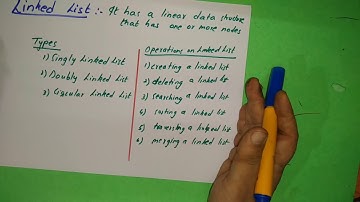 Linked List :- It has a linear data structure
that has one or more nodes
Types
1) Singly Linked List
2) Doubly Linked List
3) Circular Linked List
Operations on Linked List
1) creating a linked list
2) deleting a linked list
3) Searching a linked list
4) sorting a linked list
5) traversing a linked list
6) merging a linked list